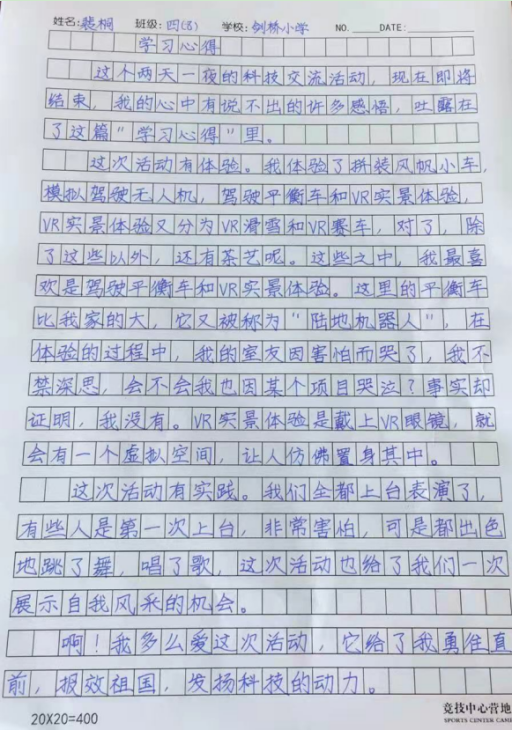 姓名:裴桐 班级:四(8) 学校:剑桥小学 NO. DATE:
学习心得
这个两天一夜的科技交流活动，现在即将
结束，我的心中有说不出的许多感悟，吐露在
了这篇"学习心得"里。
这次活动有体验。我体验了拼装风帆小车，
模拟驾驶无人机，驾驶平衡车和VR实景体验，
VR实景体验又分为VR滑雪和VR赛车，对了，除
了这些以外，还有茶艺呢。这些之中，我最喜
欢是驾驶平衡车和VR实景体验。这里的平衡车
比我家的大，它又被称为"陆地机器人"，在
体验的过程中，我的室友因害怕而哭了，我不
禁深思，会不会我也因某个项目哭泣？事实却
证明，我没有。VR实景体验是戴上VR眼镜，就
会有一个虚拟空间，让人仿佛置身其中。
这次活动有实践。我们全都上台表演了，
有些人是第一次上台，非常害怕，可是都出色
地跳了舞，唱了歌，这次活动也给了我们一次
展示自我风采的机会。
啊！我多么爱这次活动，它给了我勇往直
前，报效祖国，发扬科技的动力。
20X20=400
竞技中心营地
SPORTS CENTER CAMP